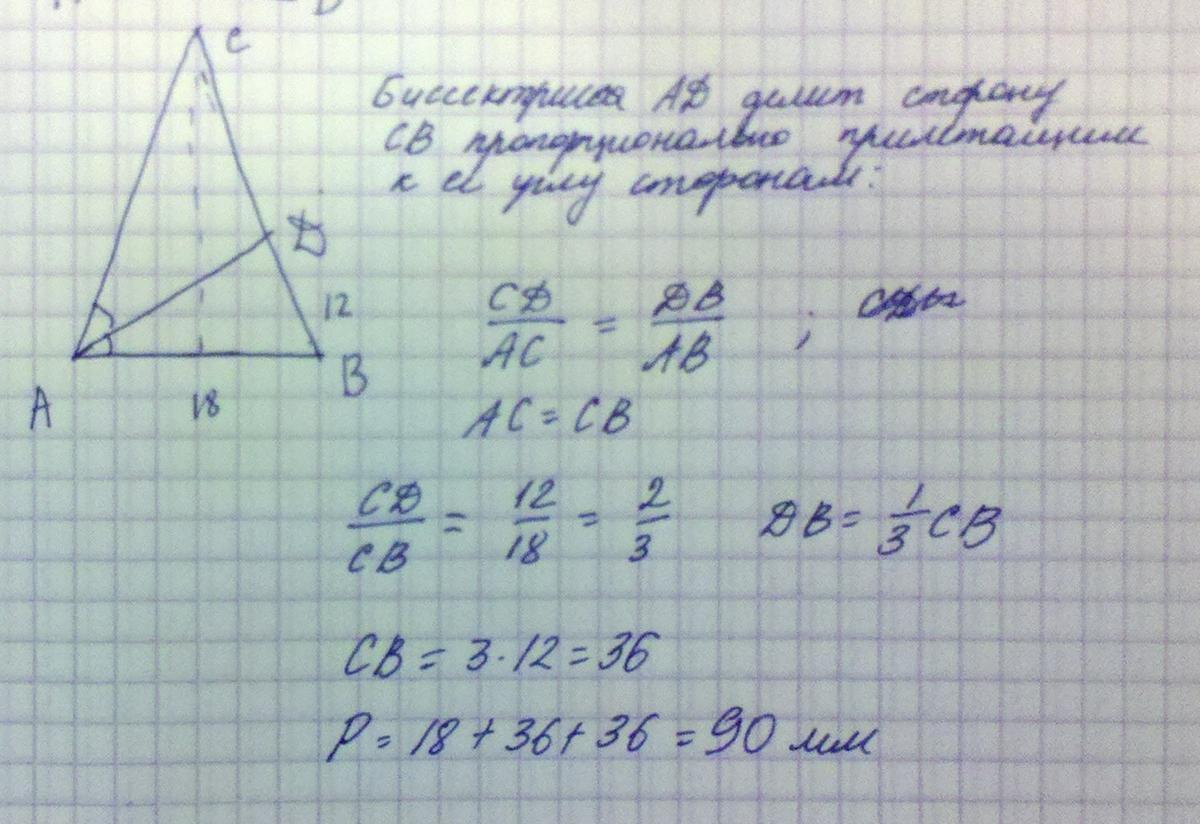 C
Биссектриса AD делит сторону
CB пропорционально прилегающим
к её углу сторонам:
D
12
A
18
B
CD/AC = DB/AB ;
AC = CB
CD/CB = 12/18 = 2/3 DB = 1/3 CB
CB = 3 · 12 = 36
P = 18 + 36 + 36 = 90 мм